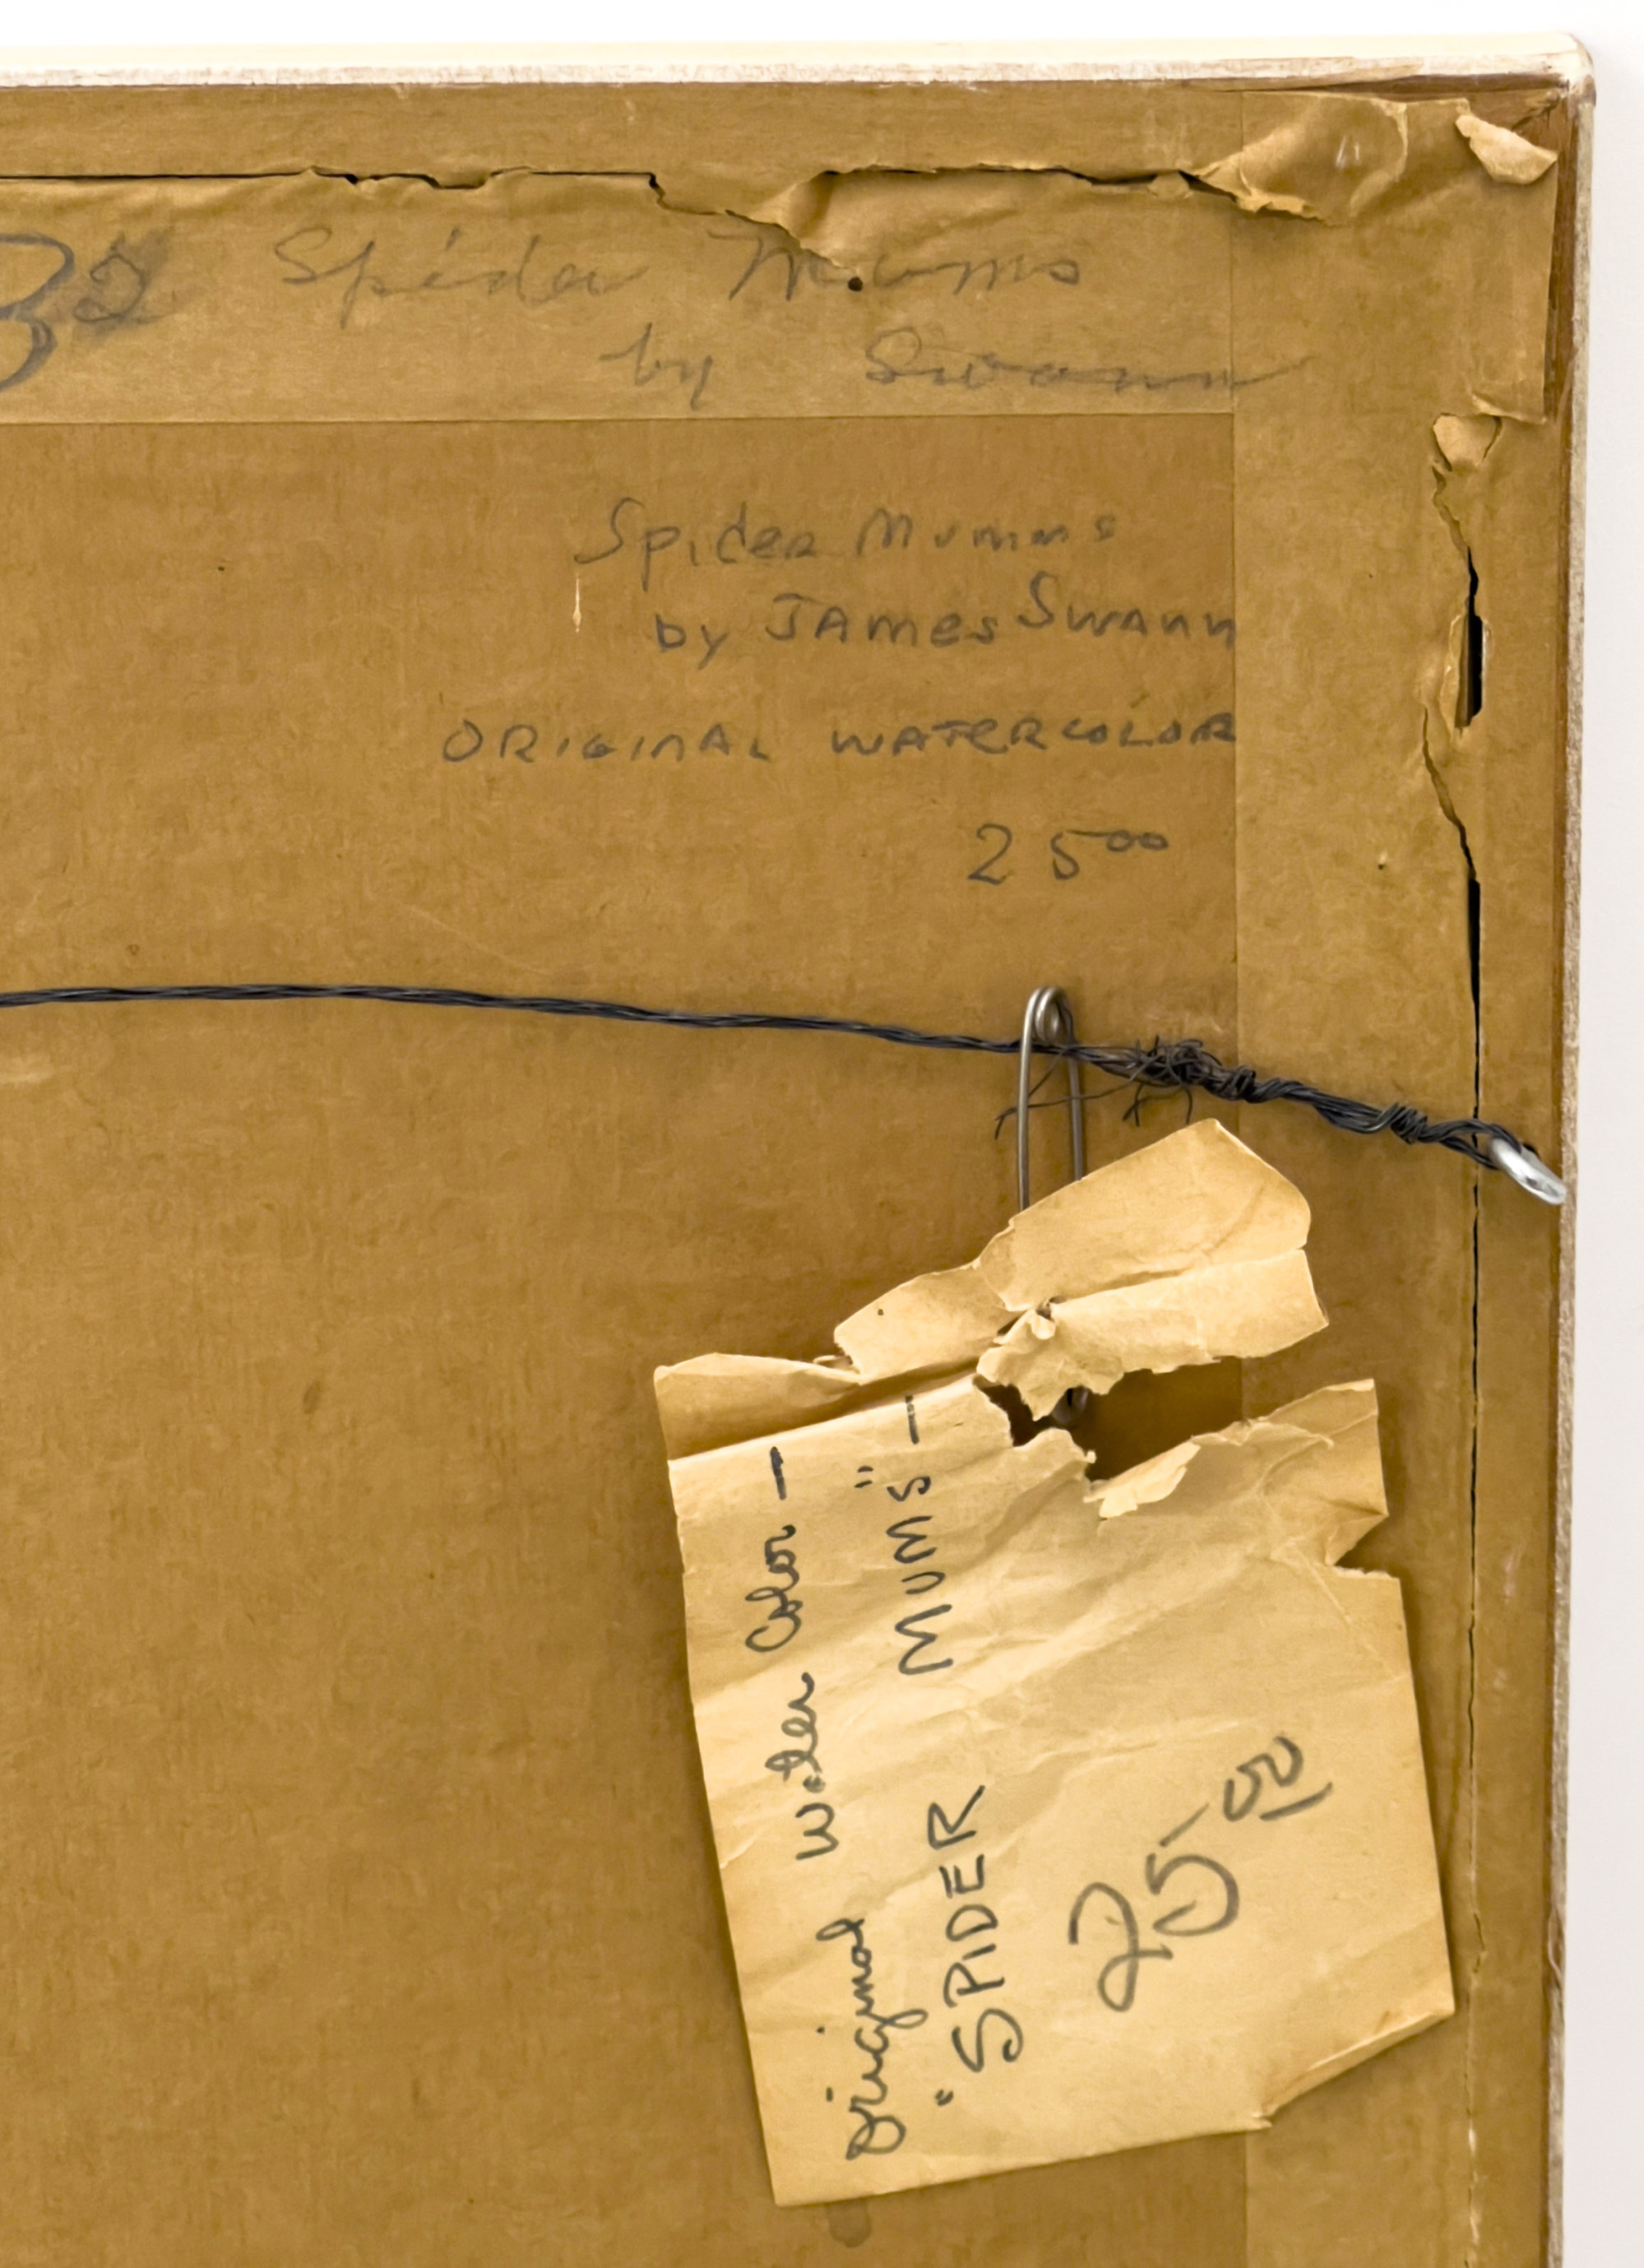 32 Spider Mums
by Swann
Spider Mumms
by JAMES Swann
ORIGINAL WATERCOLOR
25⁰⁰
Original Water Color —
"SPIDER MUMS" —
25-00